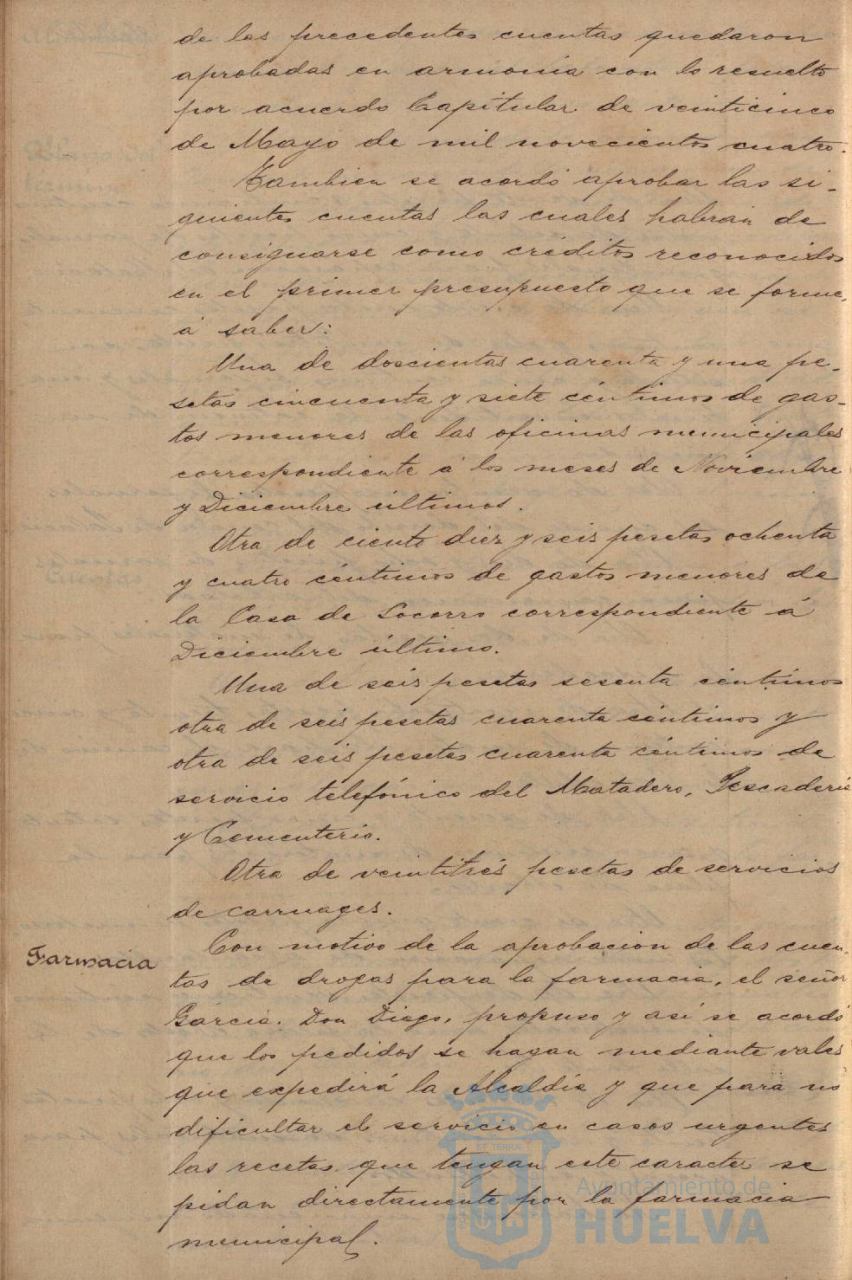 de las precedentes cuentas quedaron
aprobadas en armonia con lo resuelto
por acuerdo Capitular de veinticinco
de Mayo de mil novecientos cuatro.
Tambien se acordó aprobar las si-
guientes cuentas las cuales habrán de
consignarse como créditos reconocidos
en el primer presupuesto que se forme,
á saber:
Una de doscientas cuarenta y una pe-
setas cincuenta y siete céntimos de gas-
tos menores de las oficinas municipales
correspondiente á los meses de Noviembre
y Diciembre últimos.
Otra de ciento diez y seis pesetas ochenta
y cuatro céntimos de gastos menores de
la Casa de Socorro correspondiente á
Diciembre último.
Una de seis pesetas sesenta céntimos
otra de seis pesetas cuarenta céntimos y
otra de seis pesetas cuarenta céntimos de
servicio telefónico del Matadero, Pescaderia
y Cementerio.
Otra de veintitrés pesetas de servicios
de carruages.
Farmacia
Con motivo de la aprobacion de las cuen-
tas de drogas para la farmacia, el señor
Garcia, Don Diego, propuso y así se acordó
que los pedidos se hagan mediante vales
que expedirá la Alcaldía y que para no
dificultar el servicio en casos urgentes
las recetas que tengan este caracter se
pidan directamente por la farmacia
municipal.
Ayuntamiento de
HUELVA